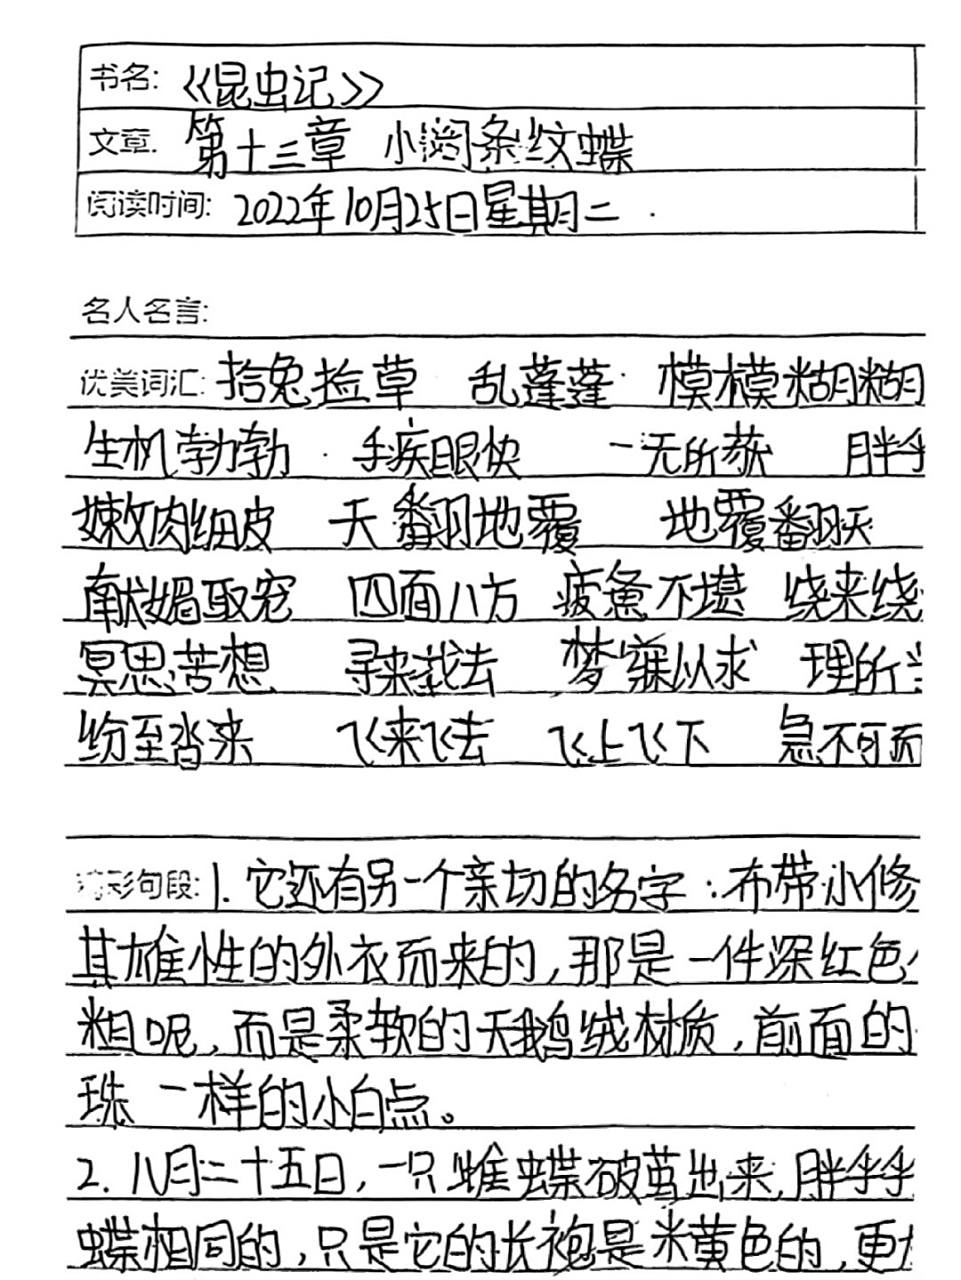 书名:《昆虫记》
文章: 第十三章 小阔条纹蝶
阅读时间: 2022年10月25日星期二
名人名言:
优美词汇: 拾兔捡草 乱蓬蓬 模模糊糊
生机勃勃 手疾眼快 一无所获 胖乎
嫩肉细皮 天翻地覆 地覆翻天
献媚取宠 四面八方 疲惫不堪 绕来绕
冥思苦想 寻来找去 梦寐以求 理所
纷至沓来 飞来飞去 飞上飞下 急不可而
精彩句段: 1. 它还有另一个亲切的名字:布带小修
其雄性的外衣而来的,那是一件深红色
粗呢,而是柔软的天鹅绒材质,前面的
珠一样的小白点。
2. 八月二十五日,一只雌蝶破茧出来,胖乎乎
蝶相同的,只是它的长袍是米黄色的,更